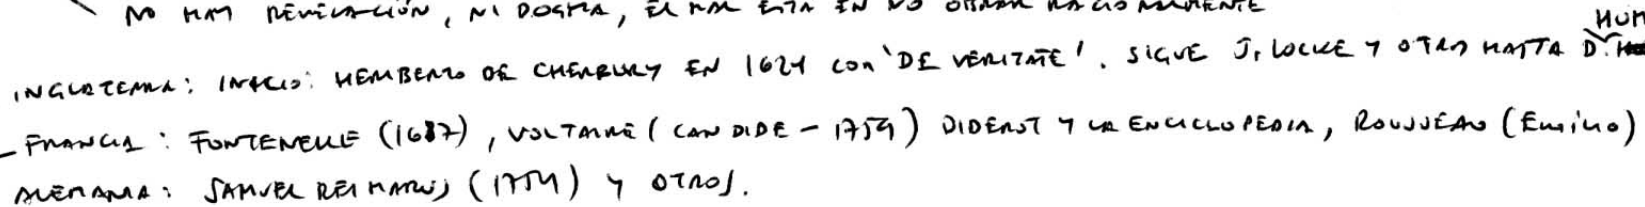 NO HAY REVELACIÓN, NI DOGMA, EL MAL ESTA EN NO OBRAR RACIONALMENTE
INGLATERRA: INICIO: HERBERTO DE CHERBURY EN 1624 CON 'DE VERITATE'. SIGUE J. LOCKE Y OTROS HASTA D. HUM
- FRANCIA: FONTENELLE (1687), VOLTAIRE (CANDIDE - 1759) DIDEROT Y LA ENCICLOPEDIA, ROUSSEAU (Emilio)
ALEMANIA: SAMUEL REIMARUS (1754) Y OTROS.